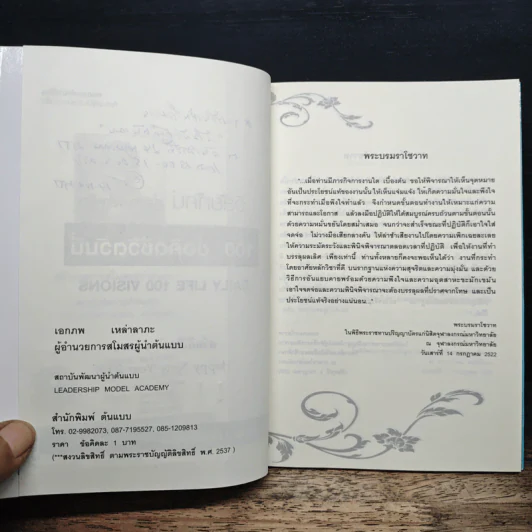 เอกภพ เหล่าลาภะ
ผู้อำนวยการสโมสรผู้นำต้นแบบ
สถาบันพัฒนาผู้นำต้นแบบ
LEADERSHIP MODEL ACADEMY
สำนักพิมพ์ ต้นแบบ
โทร. 02-9982073, 087-7195527, 085-1209813
ราคา ข้อคิดละ 1 บาท
(***สงวนลิขสิทธิ์ ตามพระราชบัญญัติลิขสิทธิ์ พ.ศ. 2537)
พระบรมราโชวาท
"...เมื่อท่านมีภารกิจการงานใด เบื้องต้น ขอให้พิจารณาให้เห็นจุดหมาย
อันเป็นประโยชน์แท้ของงานนั้นให้เห็นแจ่มแจ้ง ให้เกิดความมั่นใจและพึงใจ
ที่จะกระทำเมื่อพึงใจทำแล้ว จึงกำหนดขั้นตอนทำงานให้เหมาะแก่ความ
สามารถและโอกาส แล้วลงมือปฏิบัติให้ได้สมบูรณ์ครบถ้วนตามขั้นตอนนั้น
ด้วยความหมั่นขยันโดยสม่ำเสมอ จนกว่าจะสำเร็จขณะที่ทำต้องเอาใจใส่
จดจ่อ ไม่วางมือเสียกลางคัน ไม่ทำส่งเสียงานไปโดยความเพิกเฉยละเลย
ให้ความระมัดระวังและพินิจพิจารณาตลอดเวลาที่ปฏิบัติ เพื่อให้งานที่ทำ
บรรลุผลเลิศ เพียงเท่านี้ ท่านทั้งหลายก็คงจะพอเห็นได้ว่า งานที่กระทำ
โดยอาศัยหลักวิชาที่ดี บนรากฐานแห่งความสุจริตและความมุ่งมั่น และด้วย
วิธีการอันแยบคายพร้อมด้วยความพึงใจและความอุตสาหะขะมักเขม้น
เอาใจจดจ่อและความพินิจพิจารณาจะต้องบรรลุผลที่ปราศจากโทษ และเป็น
ประโยชน์แท้จริงอย่างแน่นอน..."
พระบรมราโชวาท
ในพิธีพระราชทานปริญญาบัตรแก่นิสิตจุฬาลงกรณ์มหาวิทยาลัย
ณ จุฬาลงกรณ์มหาวิทยาลัย
วันเสาร์ที่ 14 กรกฎาคม 2522